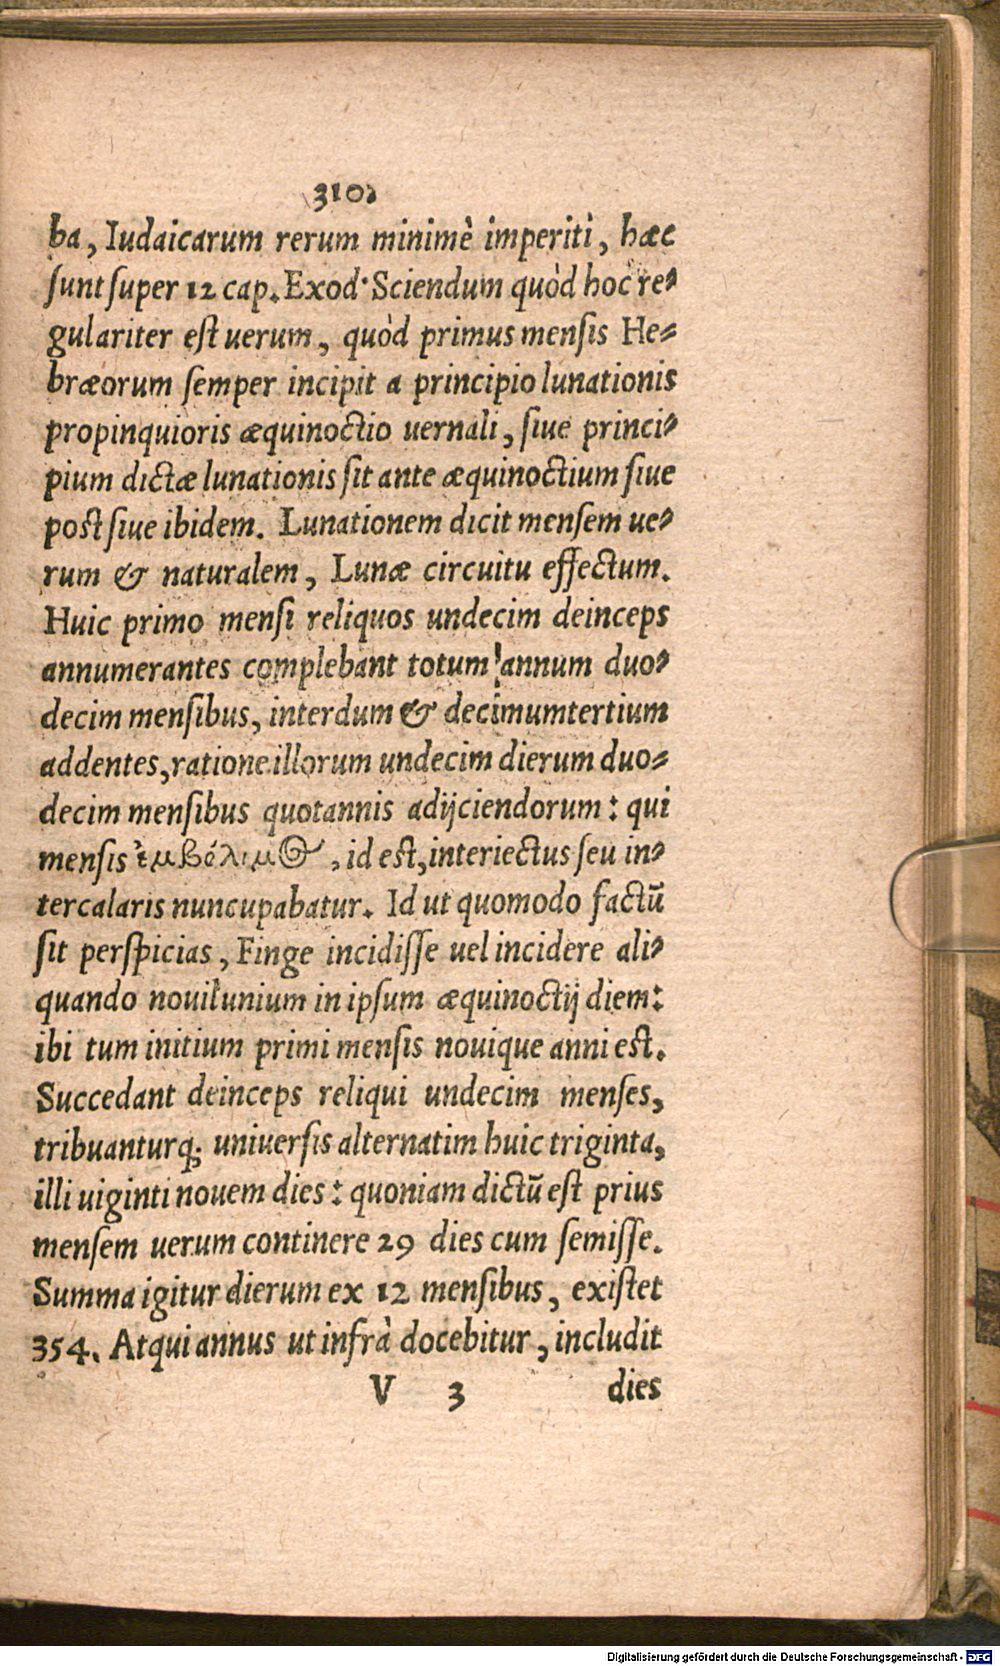 310.
ba, Iudaicarum rerum minimè imperiti, hæc
sunt super 12 cap. Exod. Sciendum quòd hoc re-
gulariter est uerum, quòd primus mensis He-
bræorum semper incipit a principio lunationis
propinquioris æquinoctio uernali, siue princi-
pium dictæ lunationis sit ante æquinoctium siue
post siue ibidem. Lunationem dicit mensem ue-
rum & naturalem, Lunæ circuitu effectum.
Huic primo mensi reliquos undecim deinceps
annumerantes complebant totum annum duo-
decim mensibus, interdum & decimumtertium
addentes, ratione illorum undecim dierum duo-
decim mensibus quotannis adijciendorum: qui
mensis ἐμβόλιμος, id est, interiectus seu in-
tercalaris nuncupabatur. Id ut quomodo factū
sit perspicias, Finge incidisse uel incidere ali-
quando nouilunium in ipsum æquinoctij diem:
ibi tum initium primi mensis nouique anni est.
Succedant deinceps reliqui undecim menses,
tribuanturq; uniuersis alternatim huic triginta,
illi uiginti nouem dies: quoniam dictū est prius
mensem uerum continere 29 dies cum semisse.
Summa igitur dierum ex 12 mensibus, existet
354. Atqui annus ut infrà docebitur, includit
V 3 dies
Digitalisierung gefördert durch die Deutsche Forschungsgemeinschaft - DFG